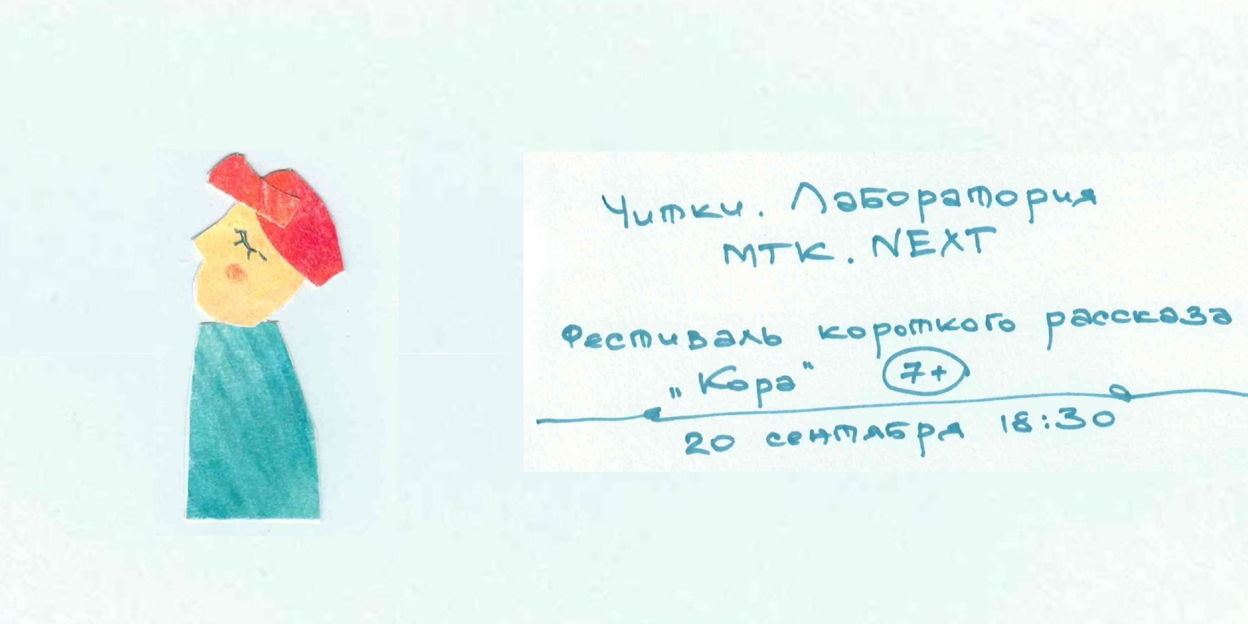 Читки. Лаборатория
МТК. NEXT
Фестиваль короткого рассказа
„Кора" 7+
20 сентября 18:30